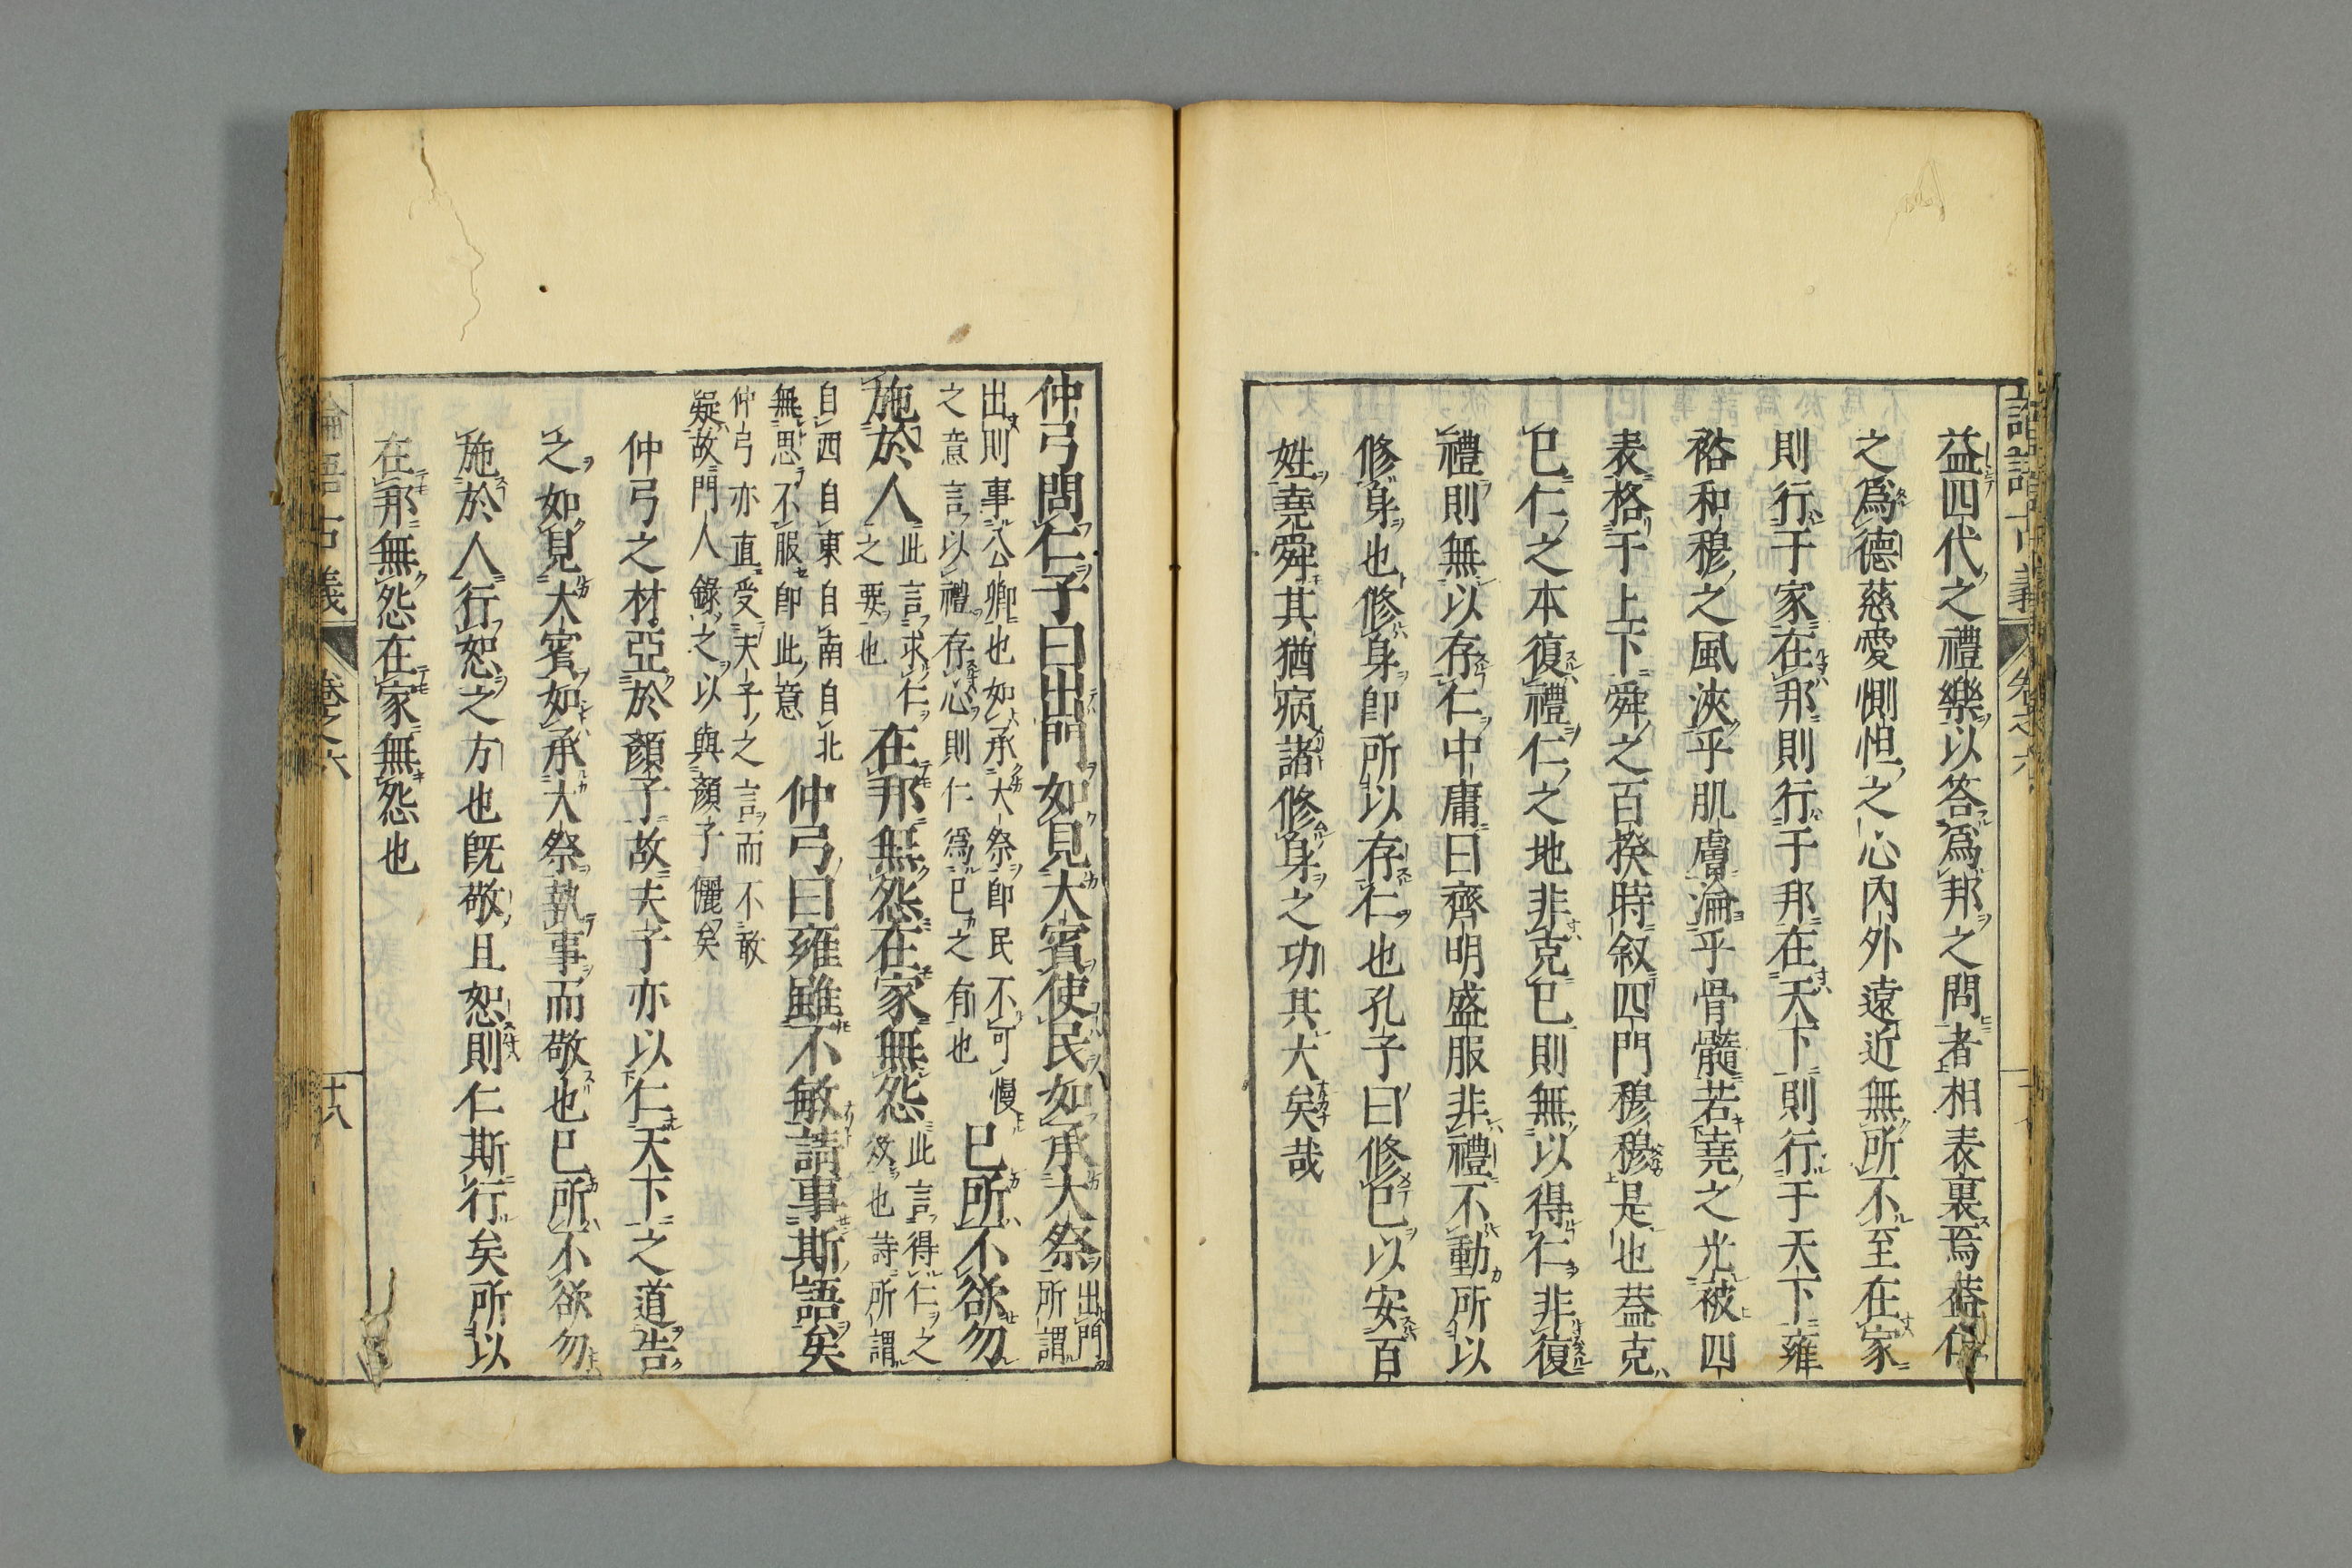 益四代之禮樂以答爲邦之問者相表裏焉蓋仁
之爲德慈愛惻怛之心內外遠近無所不至在家
則行于家在邦則行于邦在天下則行于天下雍
裕和穆之風浹乎肌膚淪乎骨髓若堯之光被四
表格于上下舜之百揆時叙四門穆穆是也蓋克
己仁之本復禮仁之地非克己則無以得仁非復
禮則無以存仁中庸曰齊明盛服非禮不動所以
修身也修身卽所以存仁也孔子曰修己以安百
姓堯舜其猶病諸修身之功其大矣哉
仲弓問仁子曰出門如見大賓使民如承大祭出門所謂
出則事公卿也如承大祭卽民不可慢
之意言以禮存心則仁爲己之有也己所不欲勿
施於人此言求仁之要也在邦無怨在家無怨此言得仁之效也詩所謂
自西自東自南自北
無思不服卽此意仲弓曰雍雖不敏請事斯語矣
仲弓亦直受夫子之言而不敢
疑故門人錄之以與顏子儷矣
仲弓之材亞於顏子故夫子亦以仁天下之道告
之如見大賓如承大祭執事而敬也己所不欲勿
施於人行恕之方也旣敬且恕則仁斯行矣所以
在邦無怨在家無怨也
論語古義
卷之六
十八